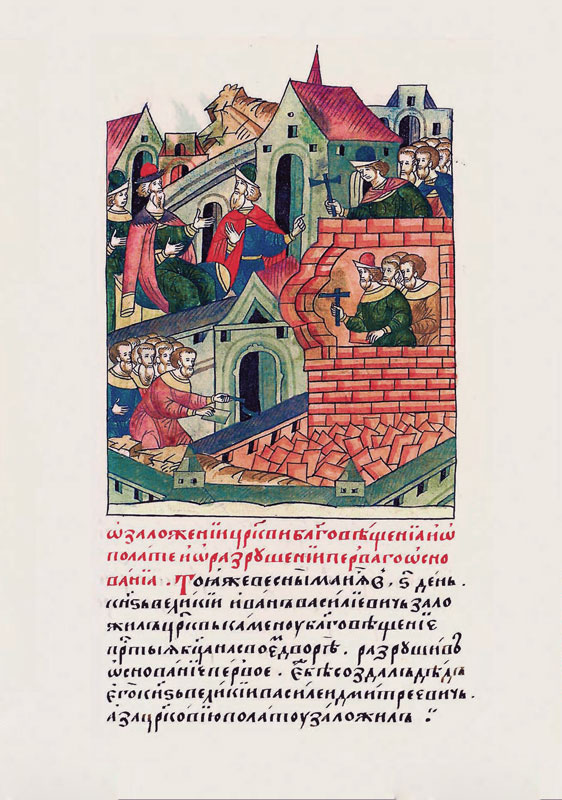 Ѡ заложенїи црк҃ви благовѣщенїа и ѡ
полате и ѡ разрушенїи перваго ѡсно
ванїа. Тоя же весны маиа в҃, ѕ҃ день.
кнѧзь великїи иванъ василїевичь зало
жилъ црк҃вь каменоу благовѣщенїе
прч҃тыѧ бц҃а на своемъ дворѣ. разрушивъ
ѡснованїе первое. еже бѣ создалъ дѣдъ
его кнѧзь великїи василеи дмитреевичь.
а за црк҃овїю полатоу заложилъ